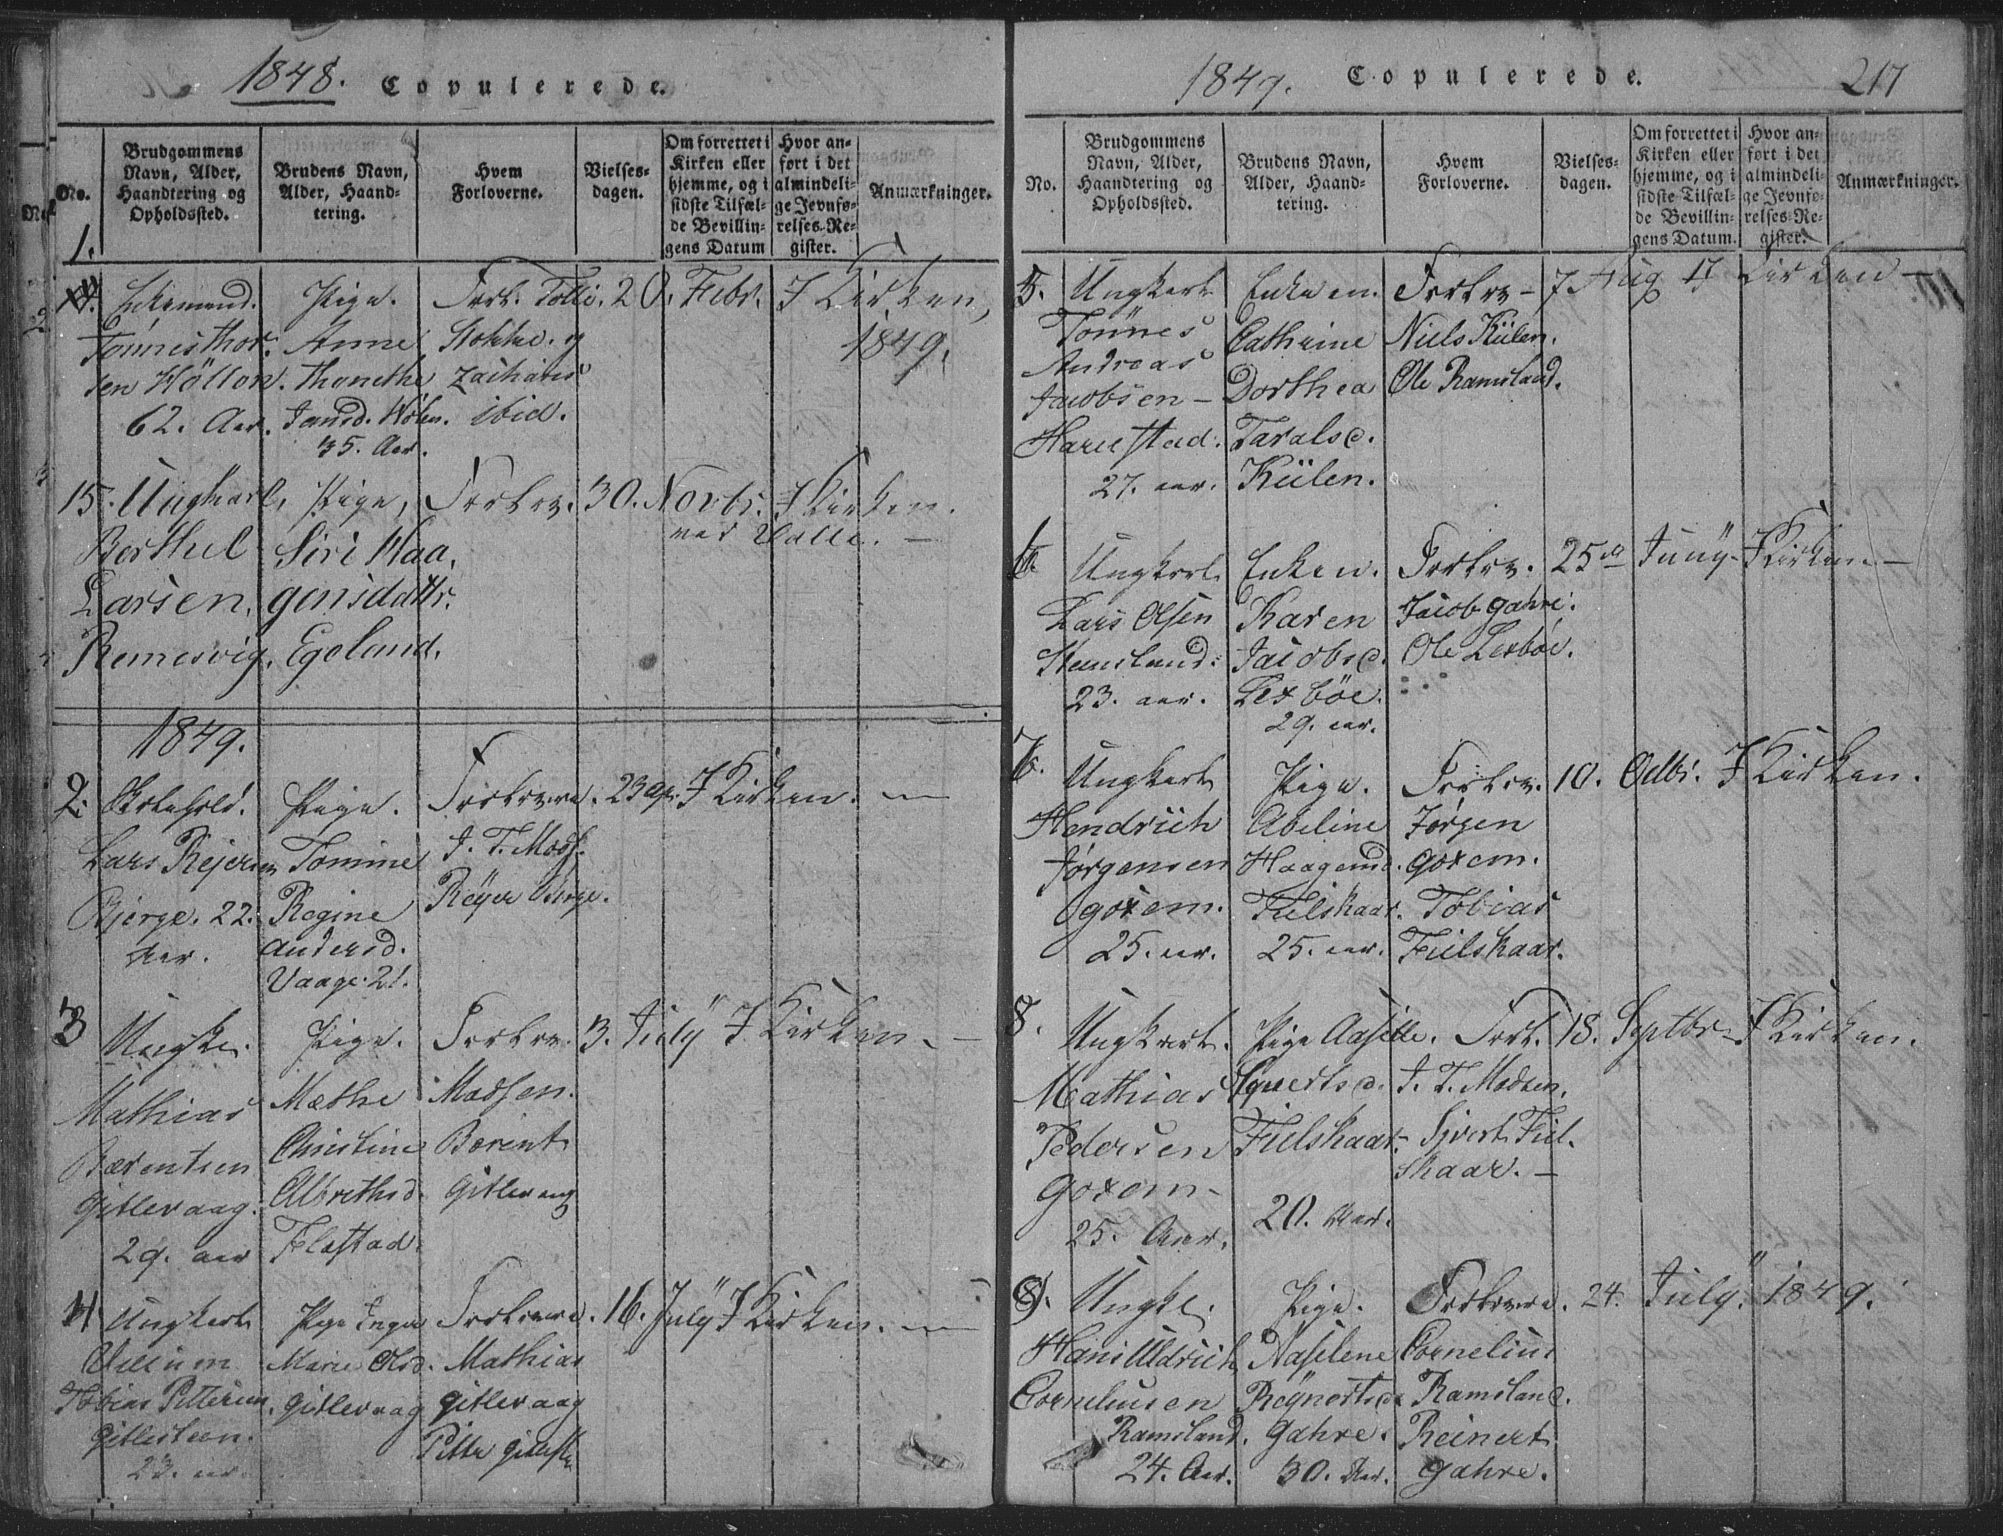 1848. Copulerede.
No.
Brudgommens Navn, Alder, Haandtering og Opholdssted.
Brudens Navn, Alder, Haandtering.
Hvem Forloverne.
Vielsesdagen.
Om forrettet i Kirken eller hjemme, og i sidste Tilfælde Bevillingens Datum
Hvor anført i det almindelige Jevnførelses-Register.
Anmærkninger.
1.
Tönnes Thorsen
62. Aar.
Pige.
Anne
Thonethe
35. Aar.
Forl. Tolli
Stokke. og
Zacharias
ibid.
20. Febr. I Kirken,
1849.
15. Ungkarl,
Berthel
Larsen,
Remesvig.
Pige,
Siri Haagensdattr.
Egeland.
Forlov.
30. Novbr. I Kirken.
ved Valle. —
1849.
2.
Lars Rejersen
Bjerge. 22.
Aar.
Pige.
Tomine
Regine
Andersd.
Vaage. 21.
Forlovere.
J. T. Mads.
Reyer Birge.
23 ap. I Kirken. —
3
Ungke.
Mathias
Bærentsen
Gitlevaag.
29. aar
Pige.
Mæthe
Christine
Albrethsd.
Flastad.
Forlov.
Madsen.
Berent
Gitlevaag
3. July I Kirken. —
4
Ungkarl
Villum
Tobias Pettersen
Gitlesteen.
23. aar.
Pige Inger
Marie Olsd.
Gitlevaag
Forlovere.
Mathias
Gitlevaag
Pitter
16. July I Kirken. —
1849. Copulerede. 217
No.
Brudgommens Navn, Alder, Haandtering og Opholdssted.
Brudens Navn, Alder, Haandtering.
Hvem Forloverne.
Vielsesdagen.
Om forrettet i Kirken eller hjemme, og i sidste Tilfælde Bevillingens Datum.
Hvor anført i det almindelige Jevnførelses-Register.
Anmærkninger.
5. Ungkarl
Tönnes
Andreas
Jacobsen —
Harestad.
27. aar.
Enken.
Cathrine
Dorthea
Taralsd.
Külen.
Forlov —
Niels Külen.
Ole Ramsland.
7 Aug Kirken —
6
Ungkarl
Lars Olsen
Stensland.
23. aar.
Enken.
Karen
Jacobsd.
Lexböe.
29. aar.
Forlov.
Jacob Gahre.
Ole Lexböe.
25de Juny I Kirken. —
7.
Ungkarl
Hendrich
Jørgensen
Goxem.
25. aar.
Pige.
Abeline
Haagensd.
Fielskaar.
25. aar.
Forlov.
Jörgen
Goxem.
Tobias
Fielskaar.
10. Octbr. I Kirken.
8.
Ungkarl.
Mathias
Pedersen
Goxem —
25. Aar.
Pige Aasille.
Syvertsd.
Fielskaar —
20. Aar.
Forl.
J. T. Madsen.
Sivert Fielskaar. —
18. Septbr — I Kirken.
9.
Ungke.
Hans Uldrich
Corneliusen
Ramsland.
24. Aar.
Pige.
Naselene
Reynertsd
Gahre.
30. Aar.
Forlovere.
Cornelius
Ramsland.
Reinert
Gahre.
24. July. 1849.